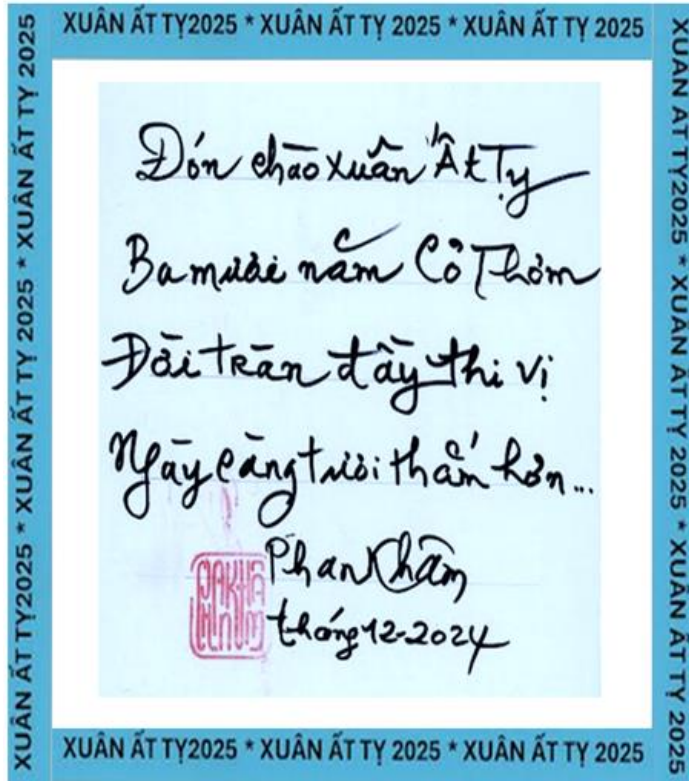 XUÂN ẤT TỴ2025 * XUÂN ẤT TỴ 2025 * XUÂN ẤT TỴ 2025
XUÂN ẤT TỴ2025 * XUÂN ẤT TỴ 2025 * XUÂN ẤT TỴ 2025
Đón chào xuân Ất Tỵ
Ba mươi năm Cỏ Thơm
Đời tràn đầy thi vị
Ngày càng tươi thắm hơn...
Phan Khâm
tháng 12-2024
XUÂN ẤT TỴ2025 * XUÂN ẤT TỴ 2025 * XUÂN ẤT TỴ 2025
XUÂN ẤT TỴ2025 * XUÂN ẤT TỴ 2025 * XUÂN ẤT TỴ 2025